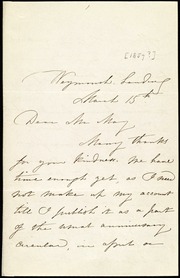 [1859?]
Weymouth Landing
March 15th
Dear Mr May
Many thanks
for your kindness. We have
time enough yet, as I need
not make up my account
till I publish it as a part
of the usual anniversary
circular, in